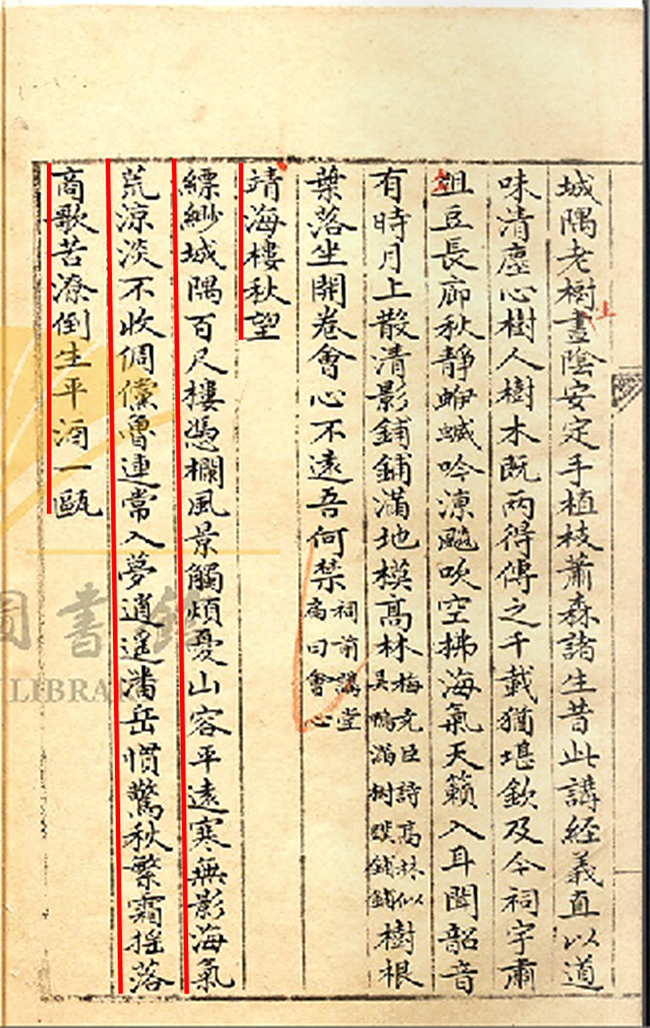 城隅老樹晝陰安定手植枝蕭森諸生昔此講經義直以道
上
味清塵心樹人樹木既兩得傳之千載猶堪欽及今祠宇肅
俎豆長廊秋靜蛜蝛吟涼颸吹空拂海氣天籟入耳聞韶音
有時月上散清影鋪鋪滿地模高林梅堯臣詩高林似吳鴨滿樹蹼鋪鋪樹根
葉落坐開卷會心不遠吾何禁祠前講堂扁曰會心
靖海樓秋望
縹緲城隅百尺樓憑欄風景觸煩憂山容平遠寒無影海氣
荒涼淡不收倜儻魯連常入夢逍遙潘岳慣驚秋繁霜搖落
商歌苦潦倒生平酒一甌
圖書館
LIBRA